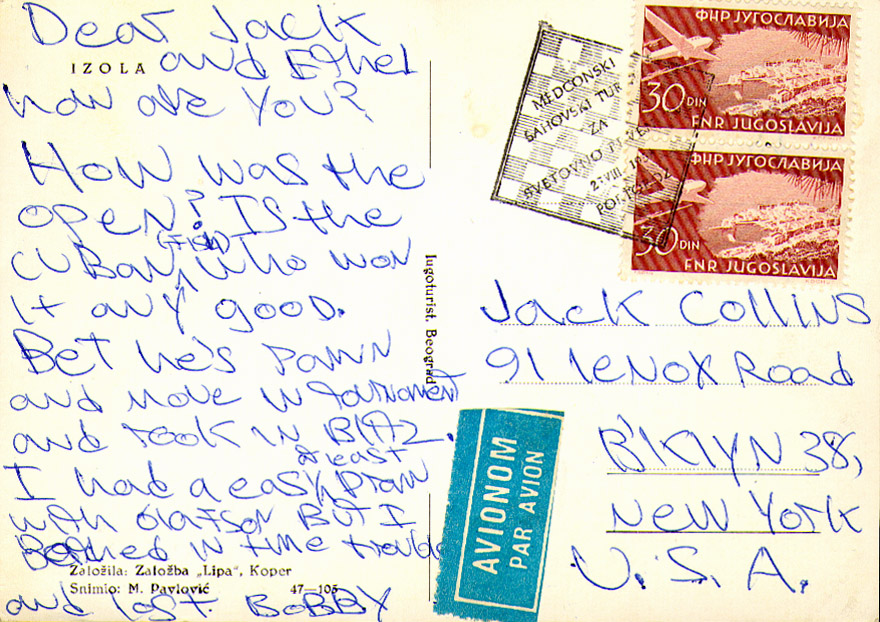 Dear Jack
IZOLA
and Ethel
how are you?
How was the
open? Is the
(FISH)
CUBAN who won
it any good.
Bet he's pawn
and move in tournament
and rook in BlitZ.
at least
I had a easy Draw
with Olafson But I
in time trouble
Založila: Založba „Lipa", Koper
Snimio: M. Pavlović 47—105
and lost. BOBBY
Jugoturist, Beograd
MEDCONSKI
ŠAHOVSKI TUR
ZA
SVETOVNO
2-VIII.
ФНР ЈУГОСЛАВИЈА
30 DIN
FNR JUGOSLAVIJA
ФНР ЈУГОСЛАВИЈА
30 DIN
FNR JUGOSLAVIJA
Jack Collins
91 lenox Road
B'KlYN 38,
New York
U.S.A.
AVIONOM
PAR AVION